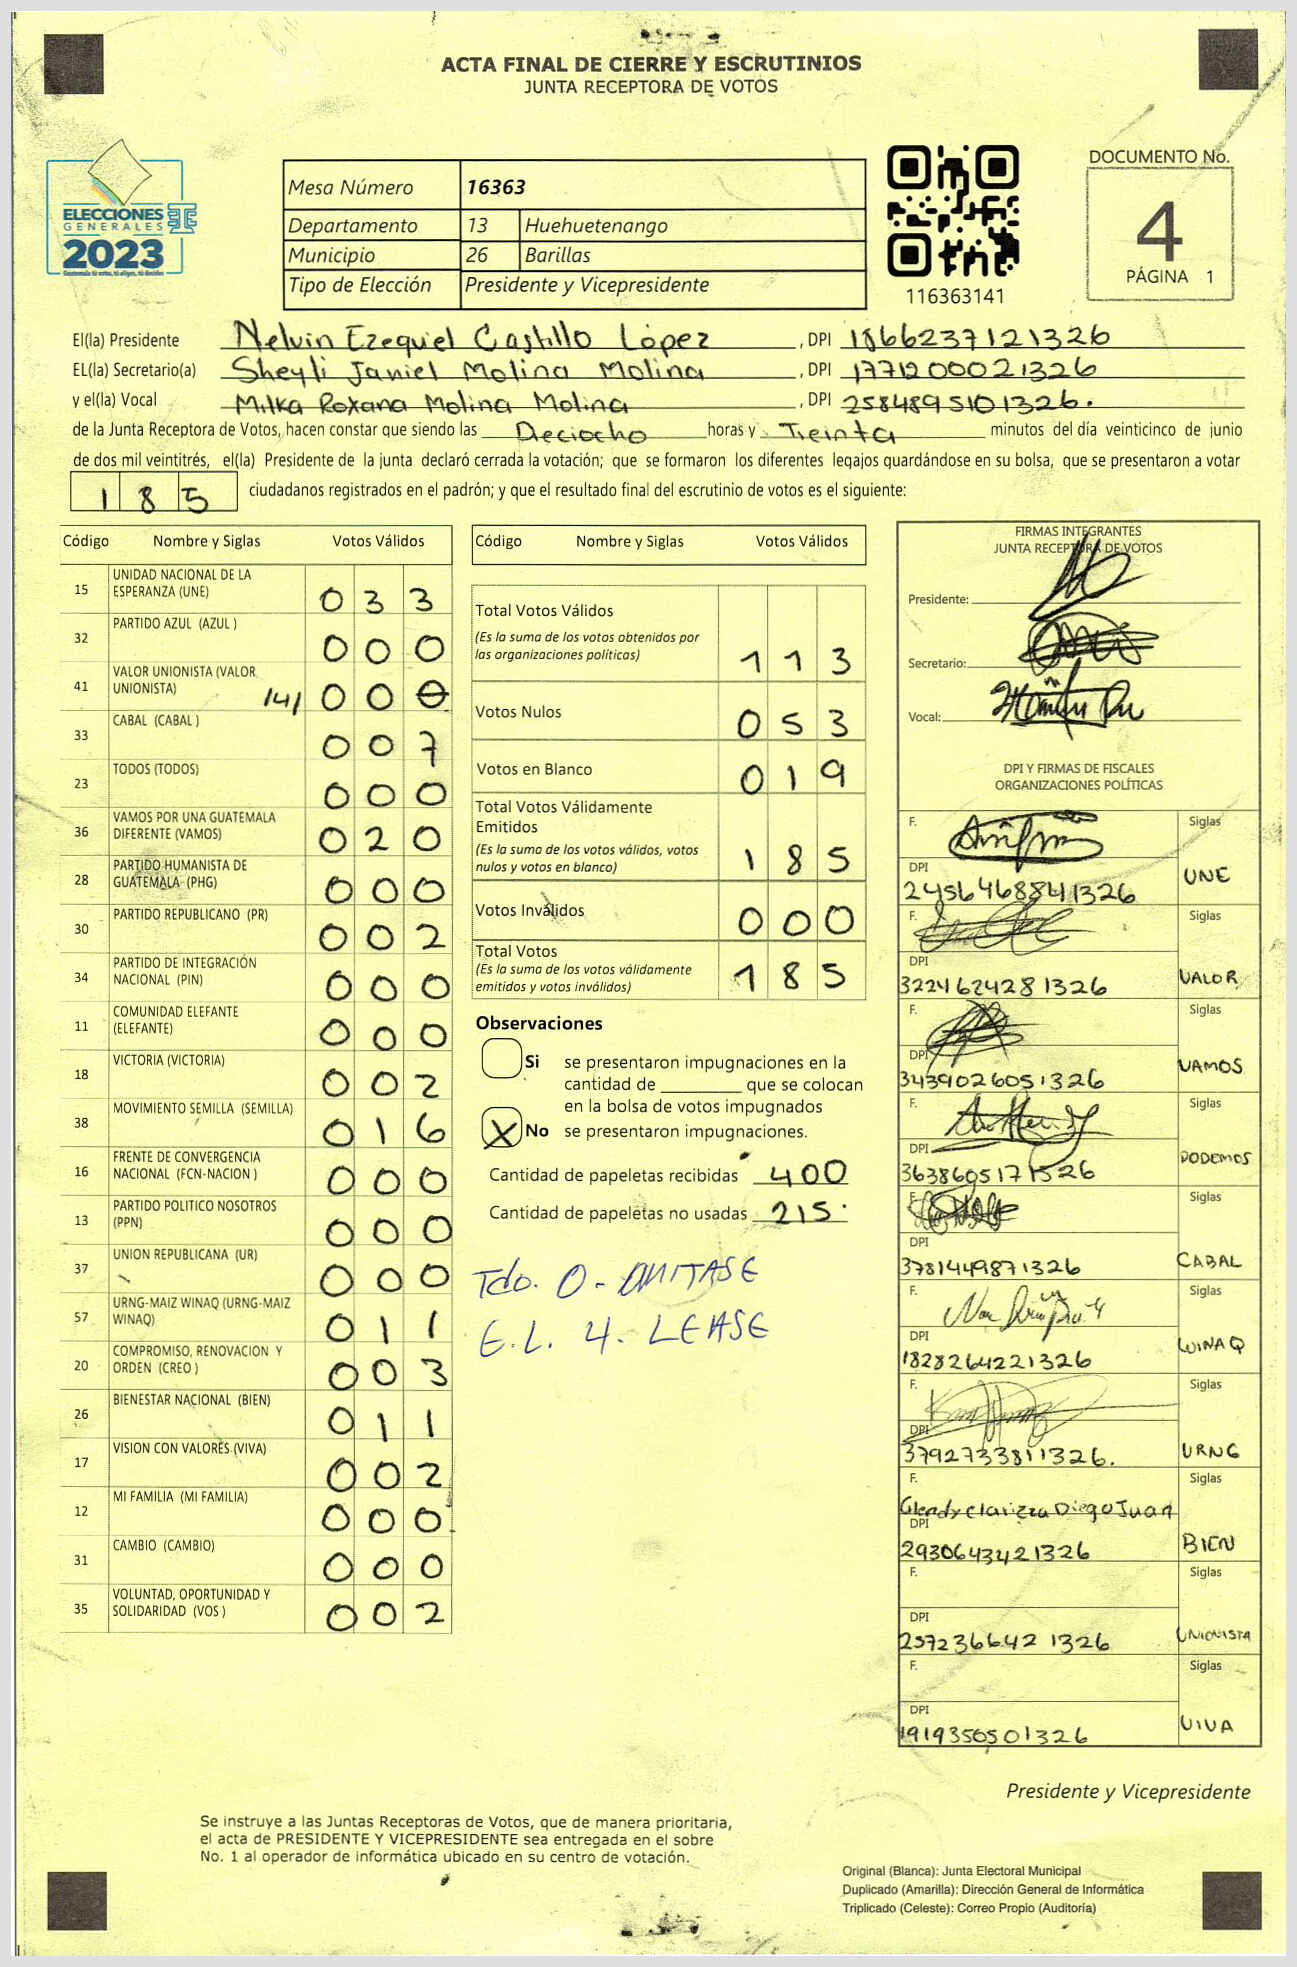 ACTA FINAL DE CIERRE Y ESCRUTINIOS
JUNTA RECEPTORA DE VOTOS
ELECCIONES
GENERALES
2023
Mesa Número 16363
Departamento 13 Huehuetenango
Municipio 26 Barillas
Tipo de Elección Presidente y Vicepresidente
116363141
DOCUMENTO No.
4
PÁGINA 1
El(la) Presidente Nelvin Ezequiel Castillo López , DPI 1866237121326
EL(la) Secretario(a) Sheyli Janiel Molina Molina , DPI 1771200021326
y el(la) Vocal Milka Roxana Molina Molina , DPI 2584895101326.
de la Junta Receptora de Votos, hacen constar que siendo las Deciocho horas y Treinta minutos del día veinticinco de junio
de dos mil veintitrés, el(la) Presidente de la junta declaró cerrada la votación; que se formaron los diferentes legajos guardándose en su bolsa, que se presentaron a votar
185 ciudadanos registrados en el padrón; y que el resultado final del escrutinio de votos es el siguiente:
Código Nombre y Siglas Votos Válidos
15 UNIDAD NACIONAL DE LA ESPERANZA (UNE) 033
32 PARTIDO AZUL (AZUL ) 000
41 VALOR UNIONISTA (VALOR UNIONISTA) 141 000
33 CABAL (CABAL ) 007
23 TODOS (TODOS) 000
36 VAMOS POR UNA GUATEMALA DIFERENTE (VAMOS) 020
28 PARTIDO HUMANISTA DE GUATEMALA (PHG) 000
30 PARTIDO REPUBLICANO (PR) 002
34 PARTIDO DE INTEGRACIÓN NACIONAL (PIN) 000
11 COMUNIDAD ELEFANTE (ELEFANTE) 000
18 VICTORIA (VICTORIA) 002
38 MOVIMIENTO SEMILLA (SEMILLA) 016
16 FRENTE DE CONVERGENCIA NACIONAL (FCN-NACION ) 000
13 PARTIDO POLITICO NOSOTROS (PPN) 000
37 UNION REPUBLICANA (UR) 000
57 URNG-MAIZ WINAQ (URNG-MAIZ WINAQ) 011
20 COMPROMISO, RENOVACION Y ORDEN (CREO ) 003
26 BIENESTAR NACIONAL (BIEN) 011
17 VISION CON VALORES (VIVA) 002
12 MI FAMILIA (MI FAMILIA) 000
31 CAMBIO (CAMBIO) 000
35 VOLUNTAD, OPORTUNIDAD Y SOLIDARIDAD (VOS ) 002
Código Nombre y Siglas Votos Válidos
Total Votos Válidos 113
(Es la suma de los votos obtenidos por
las organizaciones políticas)
Votos Nulos 053
Votos en Blanco 019
Total Votos Válidamente
Emitidos 185
(Es la suma de los votos válidos, votos
nulos y votos en blanco)
Votos Inválidos 000
Total Votos 185
(Es la suma de los votos válidamente
emitidos y votos inválidos)
Observaciones
Si se presentaron impugnaciones en la
cantidad de que se colocan
en la bolsa de votos impugnados
X No se presentaron impugnaciones.
Cantidad de papeletas recibidas 400
Cantidad de papeletas no usadas 215.
Tdo. 0 - OMITASE
E.L. 4. LEASE
FIRMAS INTEGRANTES
JUNTA RECEPTORA DE VOTOS
Presidente:
Secretario:
Vocal:
DPI Y FIRMAS DE FISCALES
ORGANIZACIONES POLÍTICAS
F. Siglas
DPI 2456468841326 UNE
F. Siglas
DPI 3224624281326 VALOR
F. Siglas
DPI 3439026051326 VAMOS
F. Siglas
DPI 3638605171326 PODEMOS
F. Siglas
DPI 3781449871326 CABAL
F. Siglas
DPI 1828264221326 WINAQ
F. Siglas
DPI 3792733811326. URNG
F. Glendy Clarizza Diego Juan Siglas
DPI 2930643421326 BIEN
F. Siglas
DPI 2572366421326 UNIONISTA
F. Siglas
DPI 1919350501326 VIVA
Presidente y Vicepresidente
Se instruye a las Juntas Receptoras de Votos, que de manera prioritaria,
el acta de PRESIDENTE Y VICEPRESIDENTE sea entregada en el sobre
No. 1 al operador de informática ubicado en su centro de votación.
Original (Blanca): Junta Electoral Municipal
Duplicado (Amarilla): Dirección General de Informática
Triplicado (Celeste): Correo Propio (Auditoría)